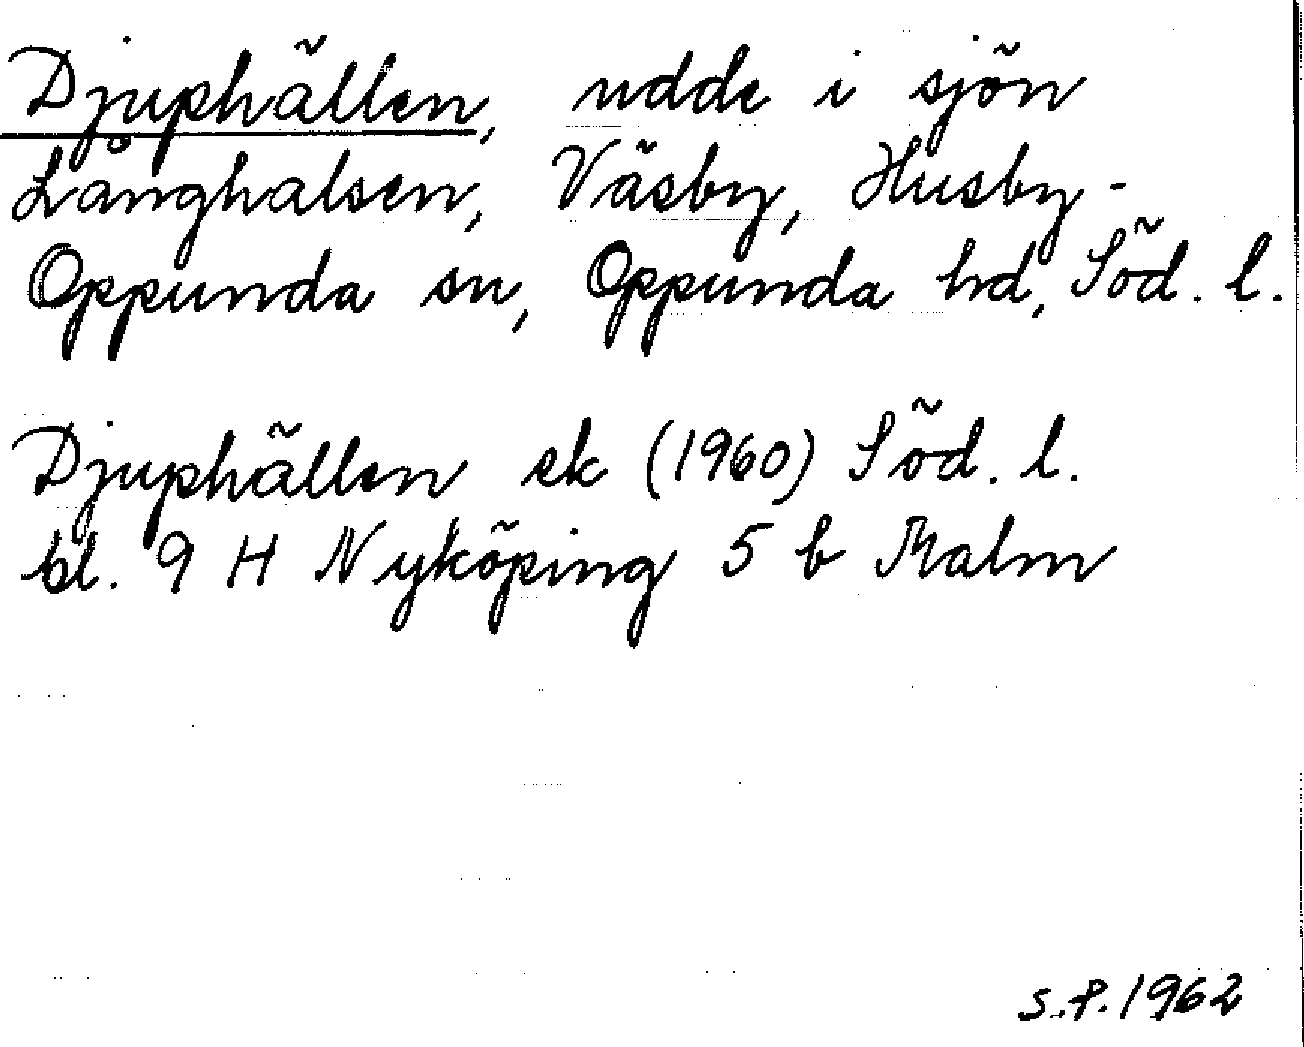 Djuphällen, udde i sjön
Långhalsen, Väsby, Husby-
Oppunda sn, Oppunda hd, Söd. l.
Djuphällen ek (1960) Söd. l.
bl. 9 H Nyköping 5 b Malm
S.P. 1962